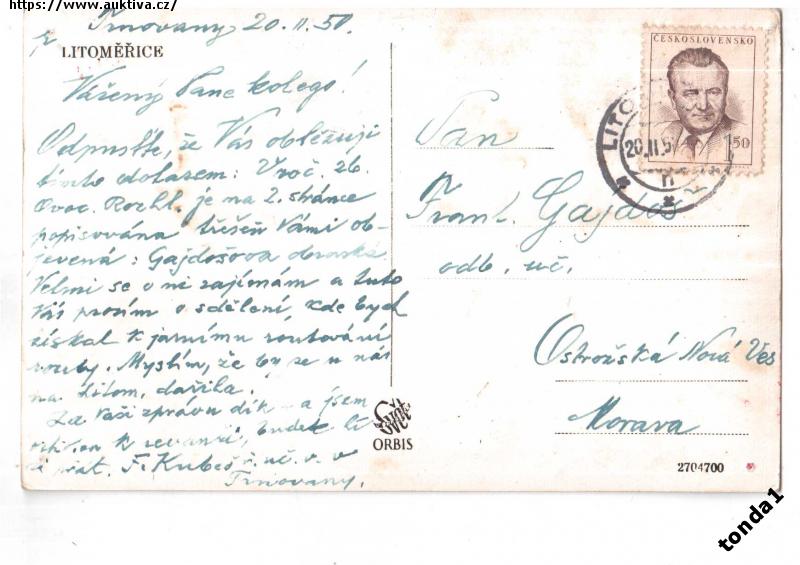 https://www.auktiva.cz/
Trnovany 20.II.50.
LITOMĚŘICE
Vážený Pane kolego!
Odpusťte, že Vás obtěžuji
tímto dotazem: V roč. 26.
Ovoc. Rozhl. je na 2. stránce
popisována třešeň Vámi ob-
jevená: Gajdošova obrovská.
Velmi se o ni zajímám a tuto
Vás prosím o sdělení, kde bych
získal k jarnímu roubování
rouby. Myslím, že by se u nás
na Litom. dařila.
Za Vaši zprávu dík – a jsem
k revanši, bude li
F. Kubeš ř. uč. v. v
Trnovany.
ČESKOSLOVENSKO
1.50
LITO
20.II.5
Pan
Frant. Gajdoš
odb. uč.
Ostrožská Nová Ves
Morava
Svět
ORBIS
2704700
tonda1